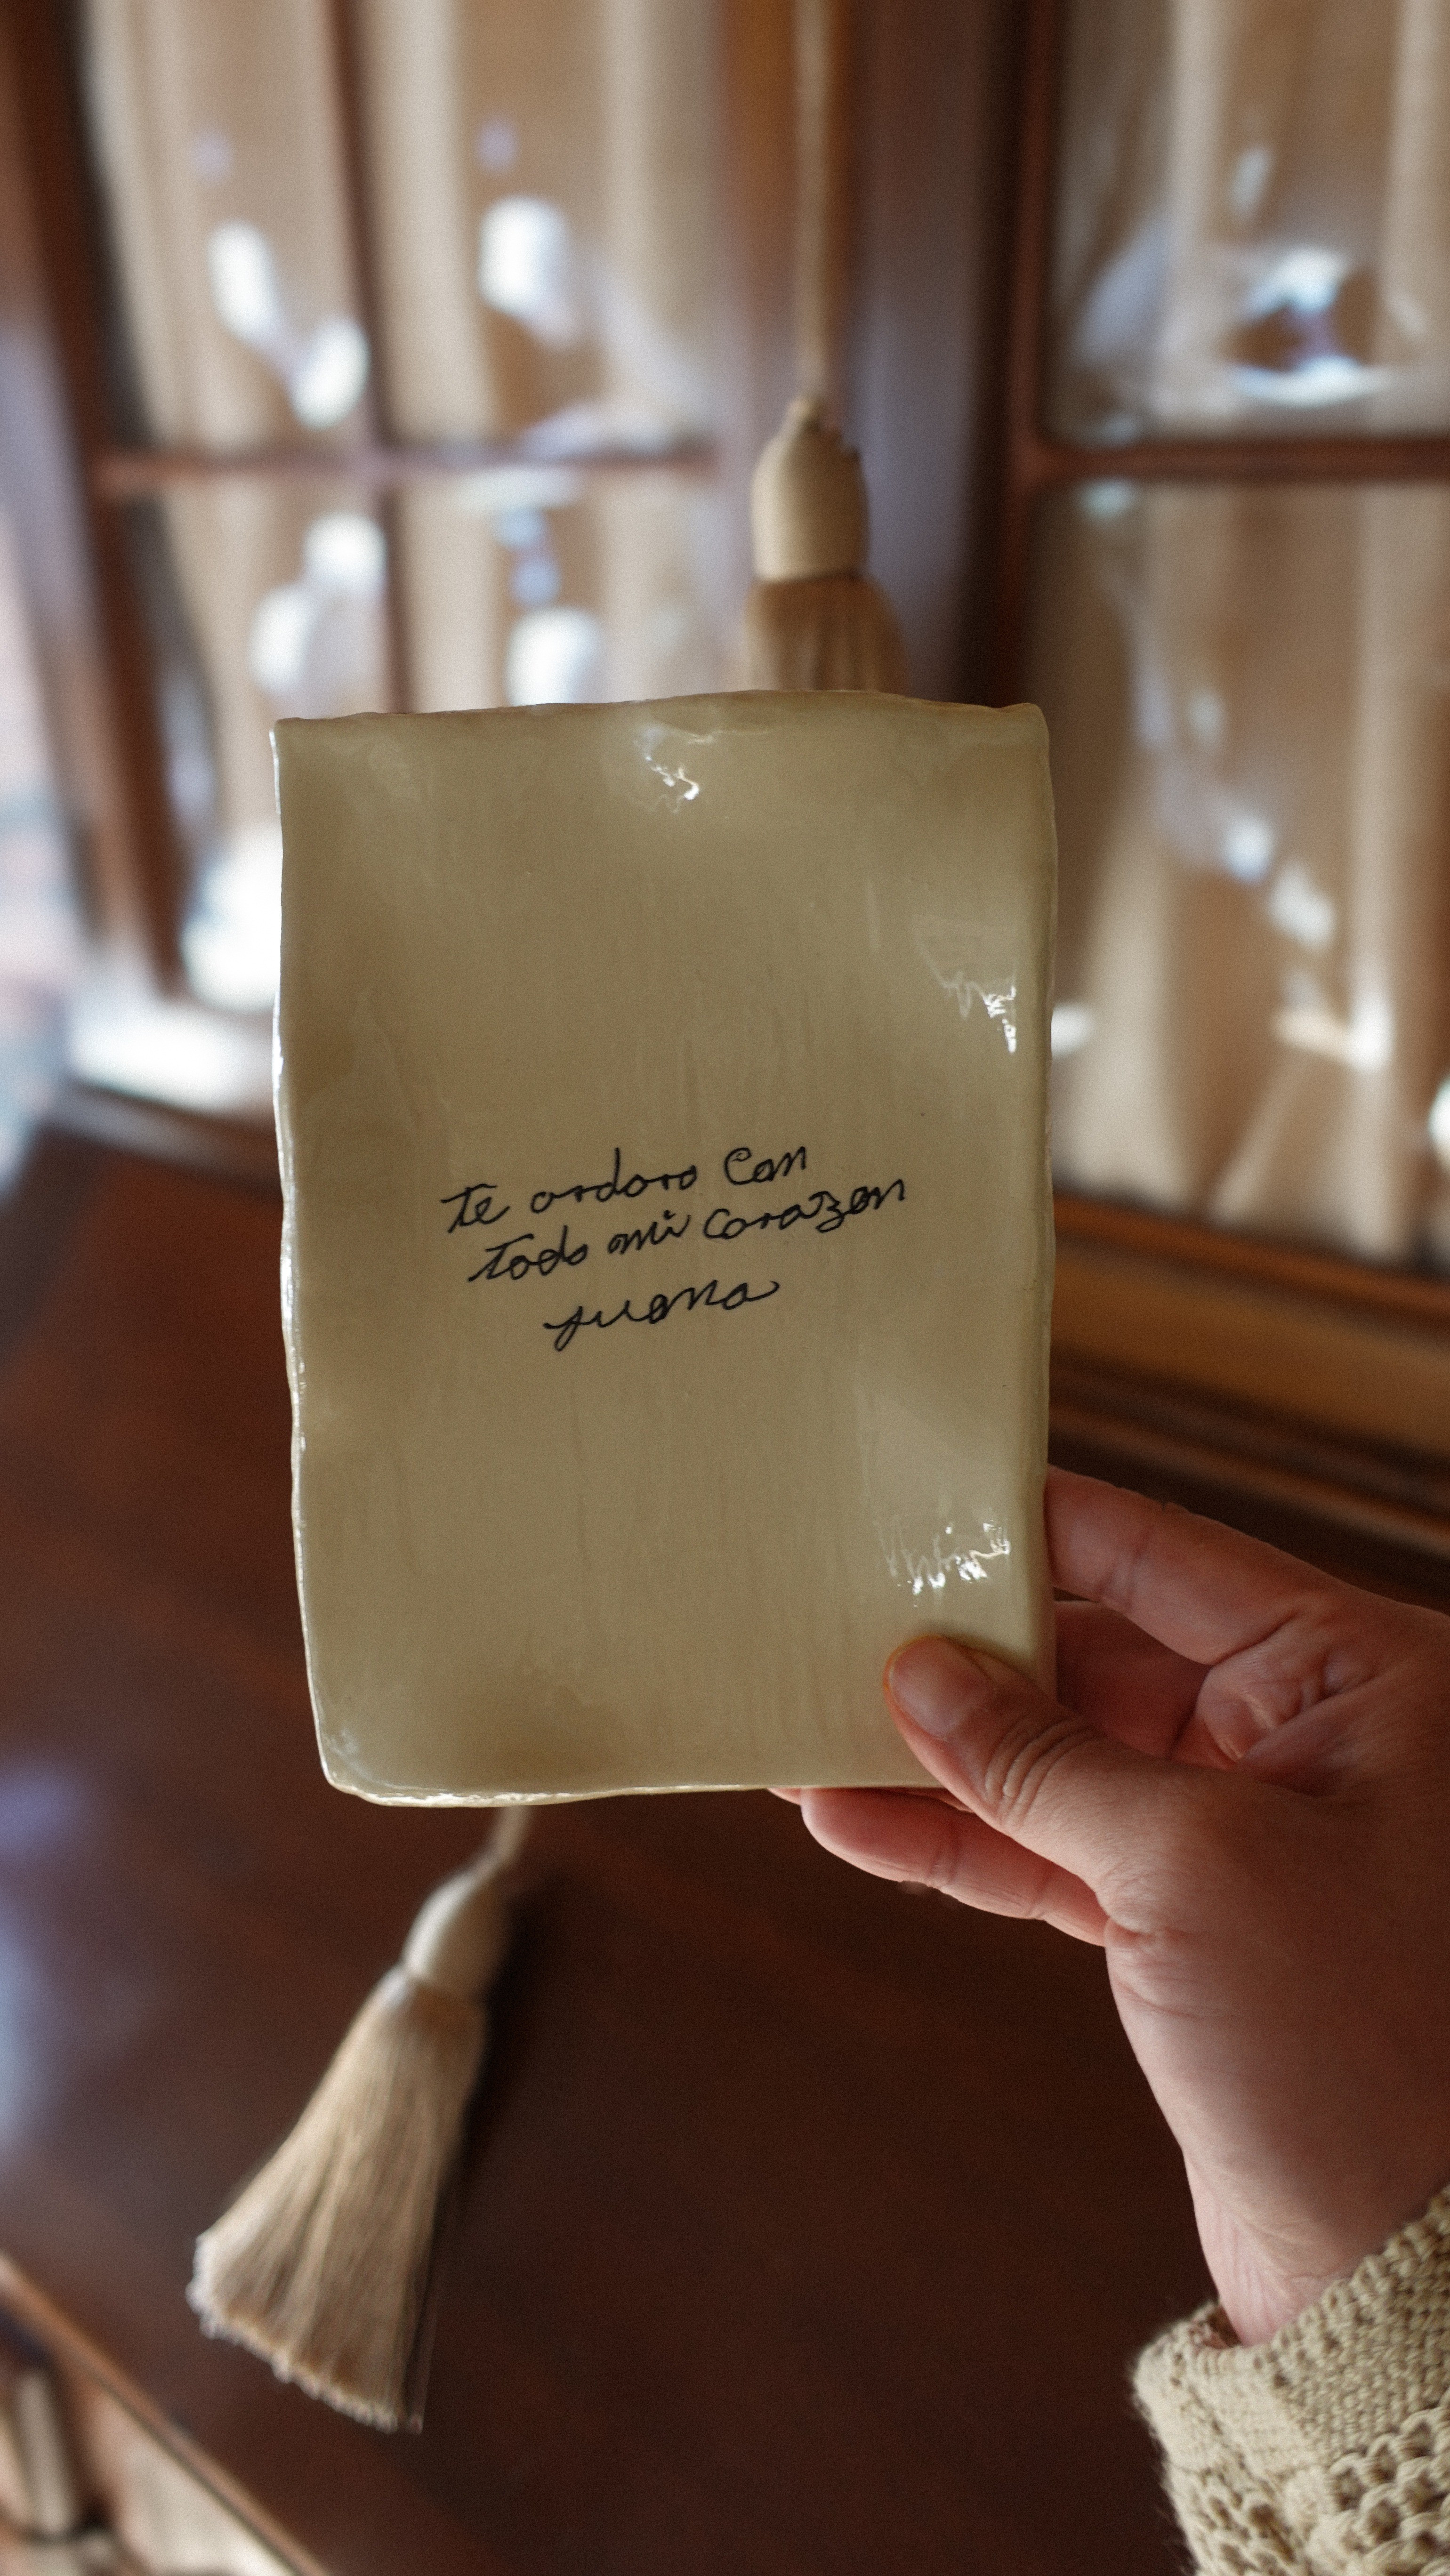 te ardoro con
todo mi corazon
juana